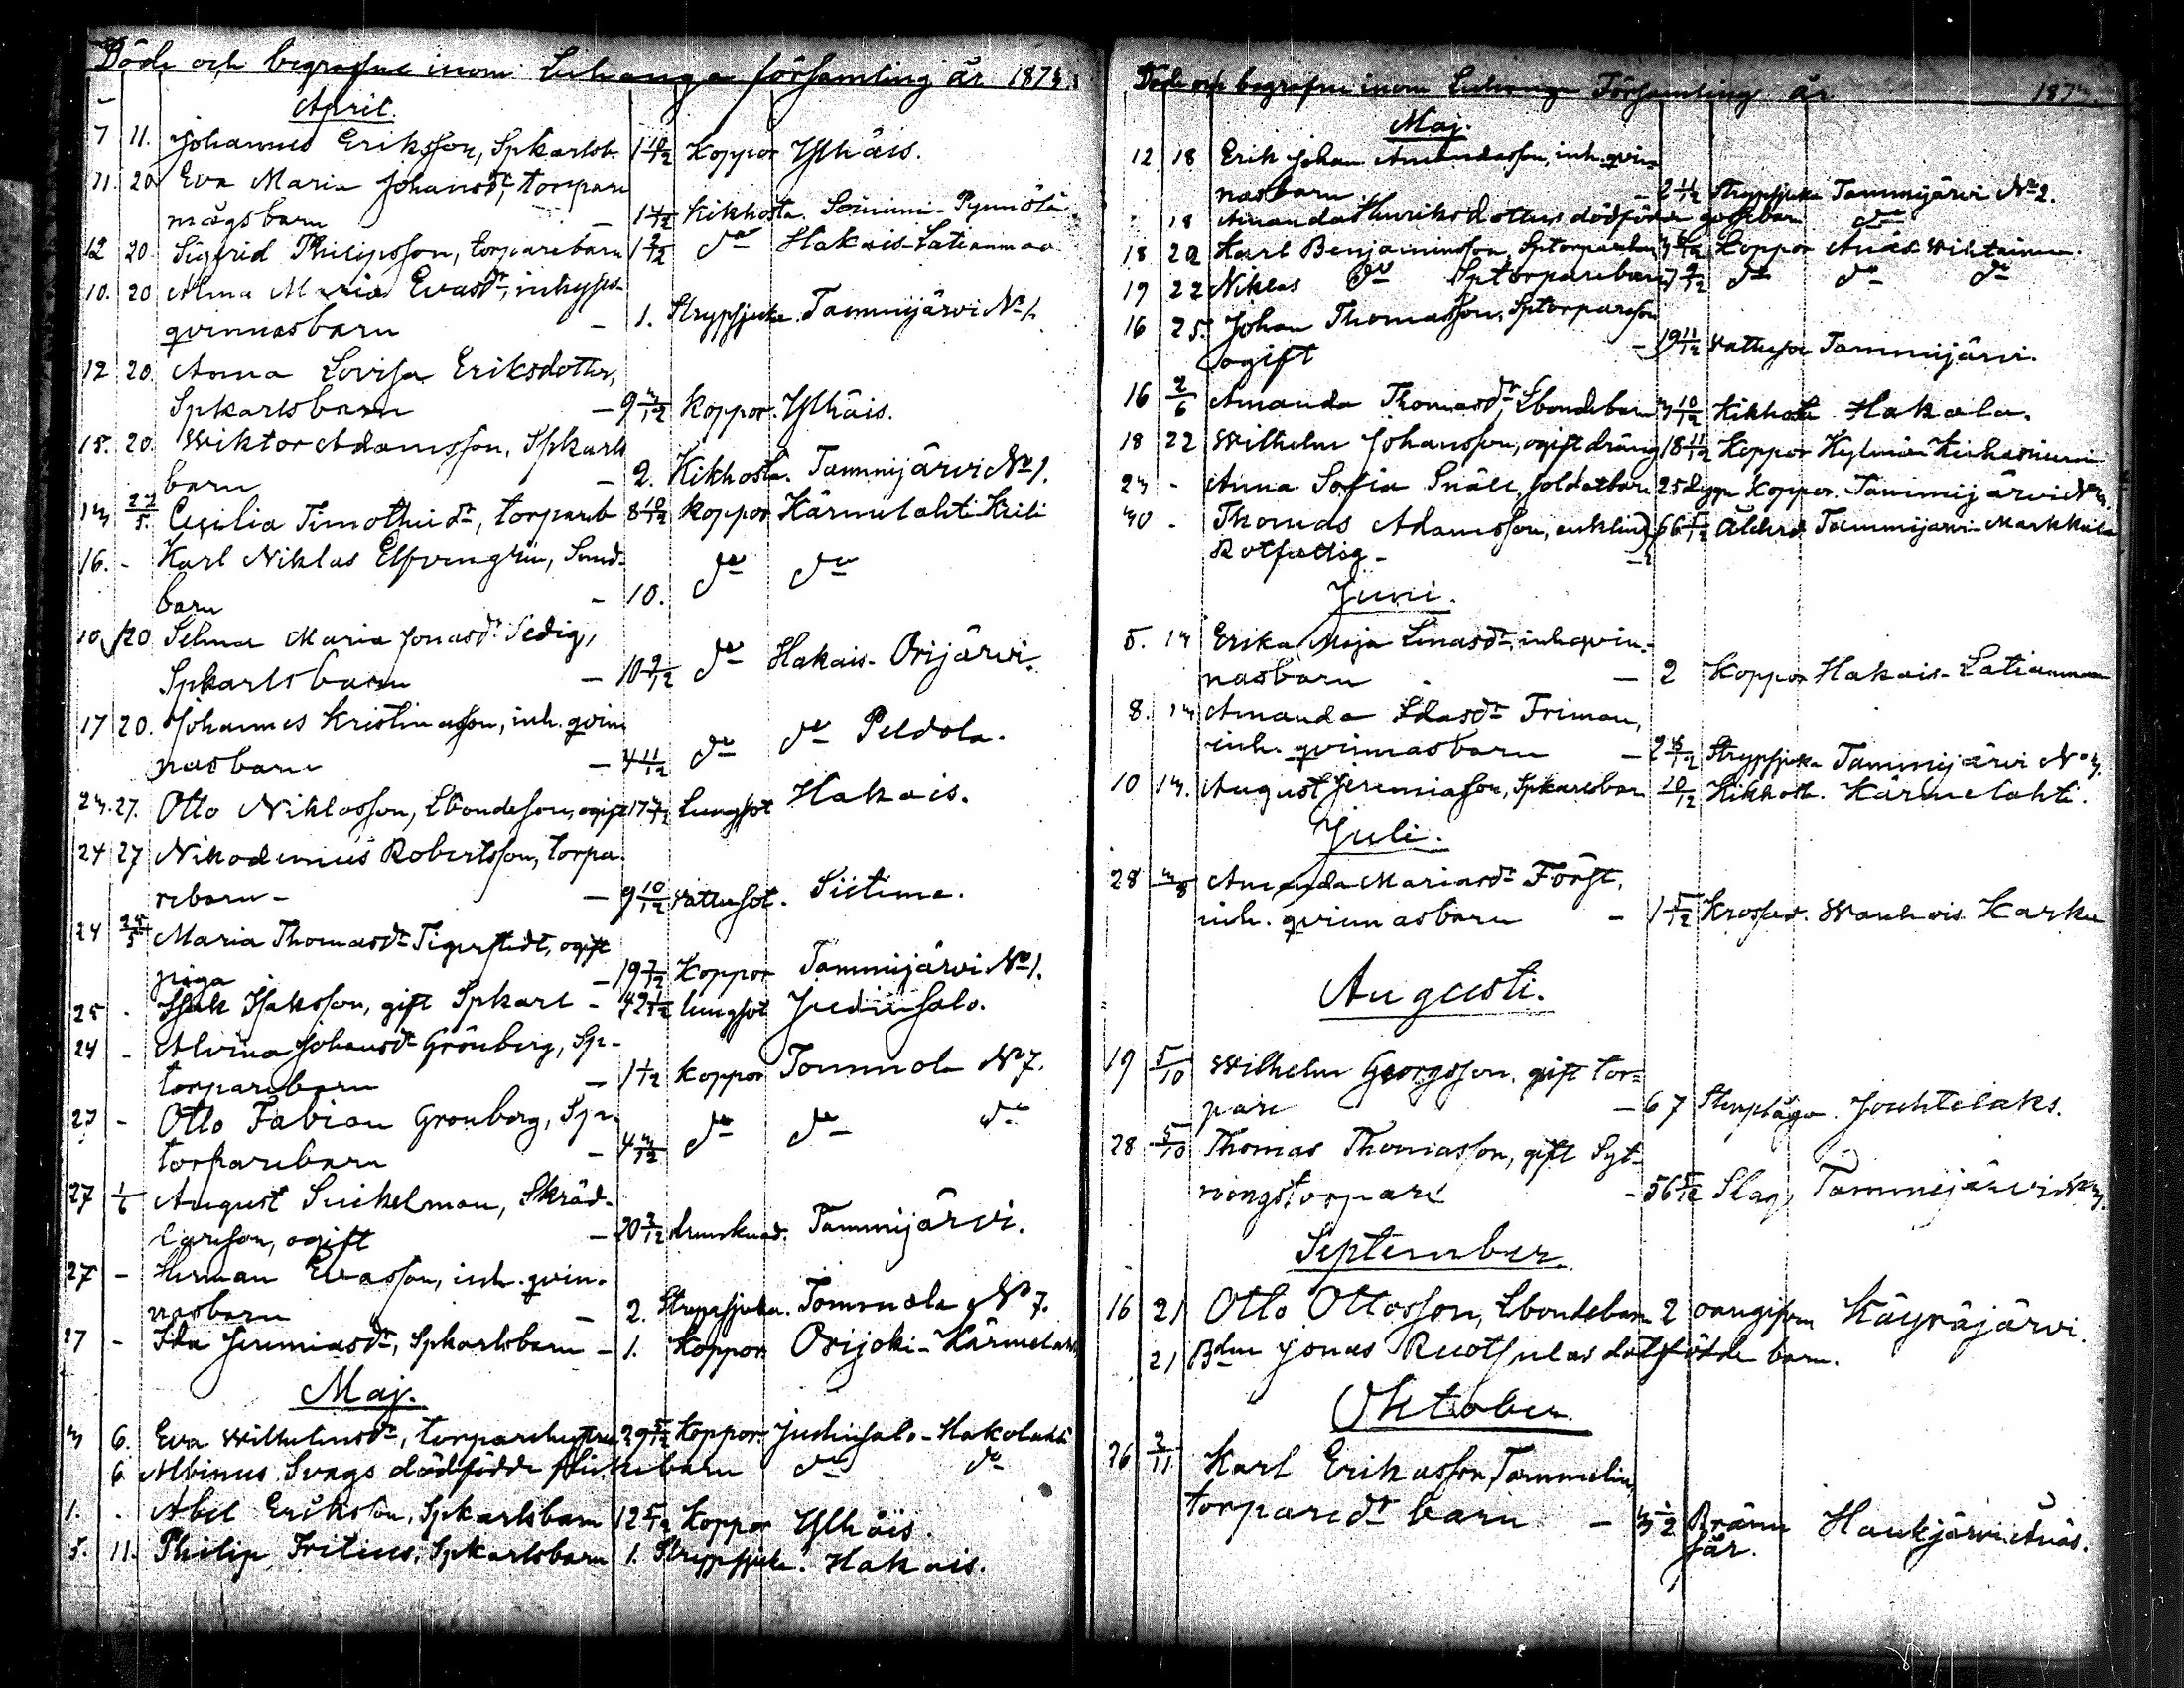 Döde och begrafne inom Luhanga församling år 1873.
April.
7 11. Johannes Eriksson, Spkarlsb. 1 10/12 Koppor Ylhäis.
11. 20 Eva Maria Johansdr, torpare
mågsbarn - 1 4/12 Kikhosta. Soinimi-Pynnölä
12 20. Sigfrid Philipsson, torparebarn 1 2/12 do Hakais-Latianmaa
10. 20 Alma Maria Evasdr, inhyses-
qvinnasbarn - 1. Strypsjuka. Tammijärvi No 1.
12 20. Anna Lovisa Eriksdotter,
Spkarlsbarn - 9 3/12 Koppor. Ylhäis.
15. 20. Wiktor Adamsson, Spkarls
barn - 2. Kikhosta. Tammijärvi No 1.
13 22/5. Cecilia Timotheidr, torpareb 8 10/12 Koppor Kärmelahti Krili
16. - Karl Niklas Elfvengren, Smed-
barn - 10. do do
10. 20 Selma Maria Jonasdr Sedig,
Spkarlsbarn - 10 9/12 do Hakais-Orijärvi.
17 20. Johannes Kristinasson, inh. qvin
nasbarn - 4 11/12 do do Peldola.
23. 27. Otto Niklasson, Lbondeson, ogift 17 7/12 Lungsot Hakais.
24 27 Nikodemus Robertsson, torpa-
rebarn - - 9 10/12 Vattusot. Siitima.
24 25/5 Maria Thomasdr Tigerstedt, ogift
piga - 19 7/12 Koppor Tammijärvi No 1.
25 - Isak Isaksson, gift Spkarl - 42 1/12 lungsot Judinsalo.
24 - Alvina Johansdr Grönberg, Sp-
torparebarn - 1 1/12 Koppor Tommola No 7.
27 - Otto Fabian Gronberg, Sp-
torparebarn - 4 3/12 do do do
27 1/6 August Sinkelman, Skräd-
dareson, ogift - 20 3/12 drunknad. Tammijärvi.
27 - Herman Evasson, inh. qvin-
nasbarn - 2. Strypsjuka. Tommola No 7.
27 - Ida Jeremiasdr, Spkarlsbarn - 1. Koppor Orijoki-Kärmelahti
Maj.
3 6. Eva Wilhelmsdr, torparehustru 29 5/12 Koppor. Judinsalo-Hakolahti
6 Albinus Svags dödfödde flickebarn do do
1. . Abel Eriksson, Spkarlsbarn 12 5/12 Koppor Ylhäis.
5. 11. Philip Fritius, Spkarlsbarn 1. Strypsjuka. Hakais.
Döde och begrafne inom Luhanga Församling år 1873.
Maj.
12 18 Erik Johan Amandasson, inh. qvin-
nasbarn - 2 11/12 Strypsjuka Tammijärvi No 2.
18 Amanda Henriksdotters dödfödde gossebarn do
18 22 Karl Benjaminsson, Sptorparebarn Koppor Anäs-Wihtainen.
19 22 Niklas do Sptorparebarn 7 2/12 do do do
16 25. Johan Thomasson, Sptorpareson
ogift - 19 11/12 Vattusot Tammijärvi.
16 2/6 Amanda Thomasdr, Lbondebarn 3 10/12 Kikhosta Hakala.
18 22 Wilhelm Johansson, ogift dräng 18 11/12 Koppor
23 - Anna Sofia Snäll, soldatbarn 25 dygn Koppor. Tammijärvi No 3
30 - Thomas Adamsson, enkling 66 5/12 Ålderd. Tammijärvi-Markkula
Rotfattig -
Juni.
5. 13 Erika Maja Linasdr, inh qvin-
nasbarn - 2 Koppor Hakais-Latianmaa
8. 13 Amanda Idasdr Friman,
inh. qvinnasbarn - 2 8/12 Strypsjuka Tammijärvi No 3.
10 13. August Jeremiason, Spkarlsbar 10/12 Kikhosta. Kärmelahti.
Juli.
28 3/8 Amanda Mariasdr Först,
inh. qvinnasbarn - 1 5/12 Wanhois Karku
Augusti.
19 5/10 Wilhelm Georgsson, gift tor-
pare - 67 Joutilaks.
28 5/10 Thomas Thomasson, gift Syt-
ningstorpare - 56 5/12 Slag, Tammijärvi No 3.
September.
16 21 Otto Ottosson, Lbondebarn 2 oangifven Käyräjärvi.
21 Bdm Jonas Ruotsulas dödfödde barn.
Oktober.
26 2/11 Karl Erikasson Tammelin,
torparedr barn - Bränn
sår. Haukjärvi Anäs.